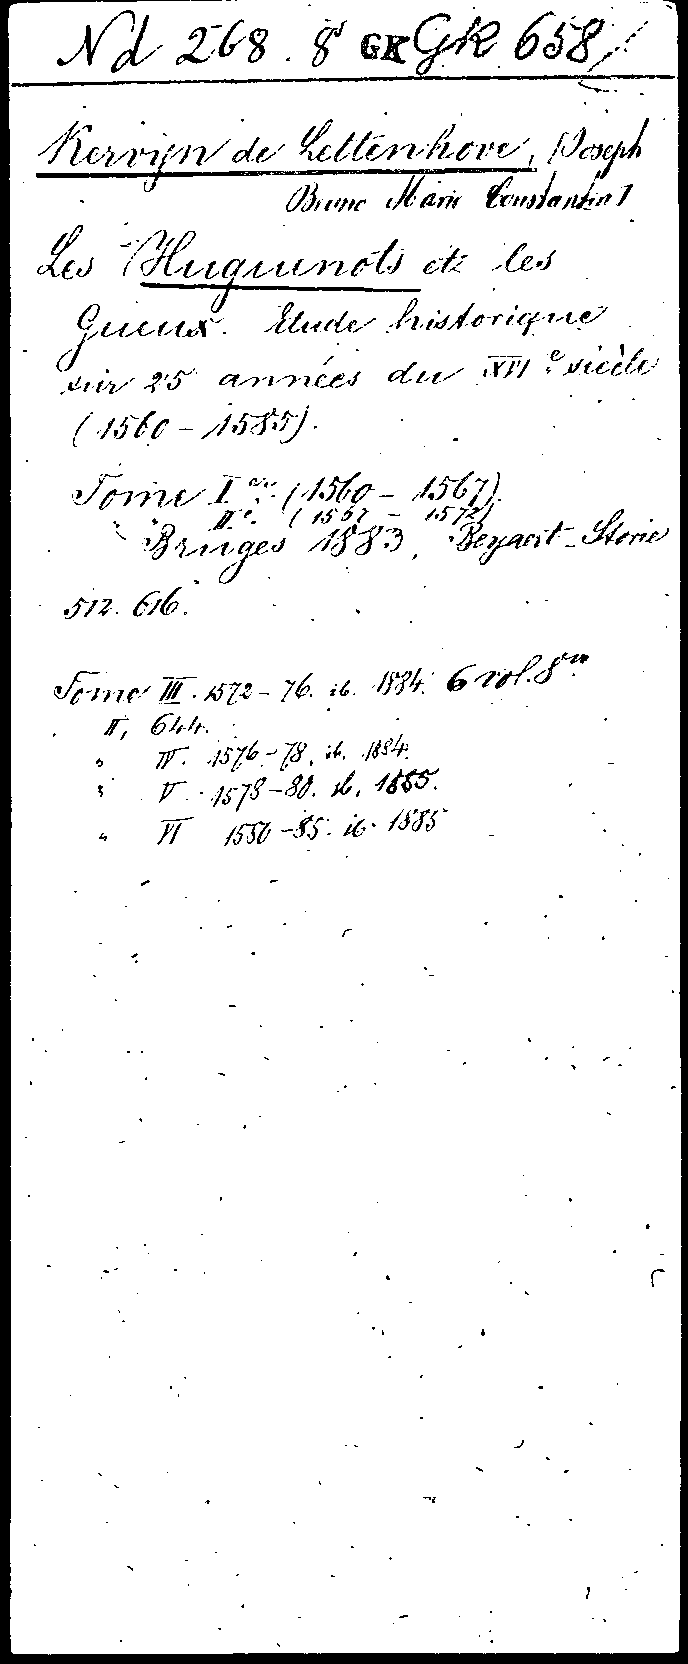 Nd 268. 8° GK GK 658/
Kervyn de Lettenhove, [Joseph
Bruno Marie Constantin]
Les Huguenots et les
Gueux. Etude historique
sur 25 années du XVIe siècle
(1560 - 1585).
Tome Ier. (1560 - 1567).
" IIe. (1567 - 1572)
Bruges 1883, Beyaert-Storie
512. 616.
Tome III. 1572-76. ib. 1884. 6 vol. 8vo
II, 644.
" IV. 1576-78. ib. 1884.
" V. 1578-80. ib. 1885.
" VI 1580-85. ib. 1885